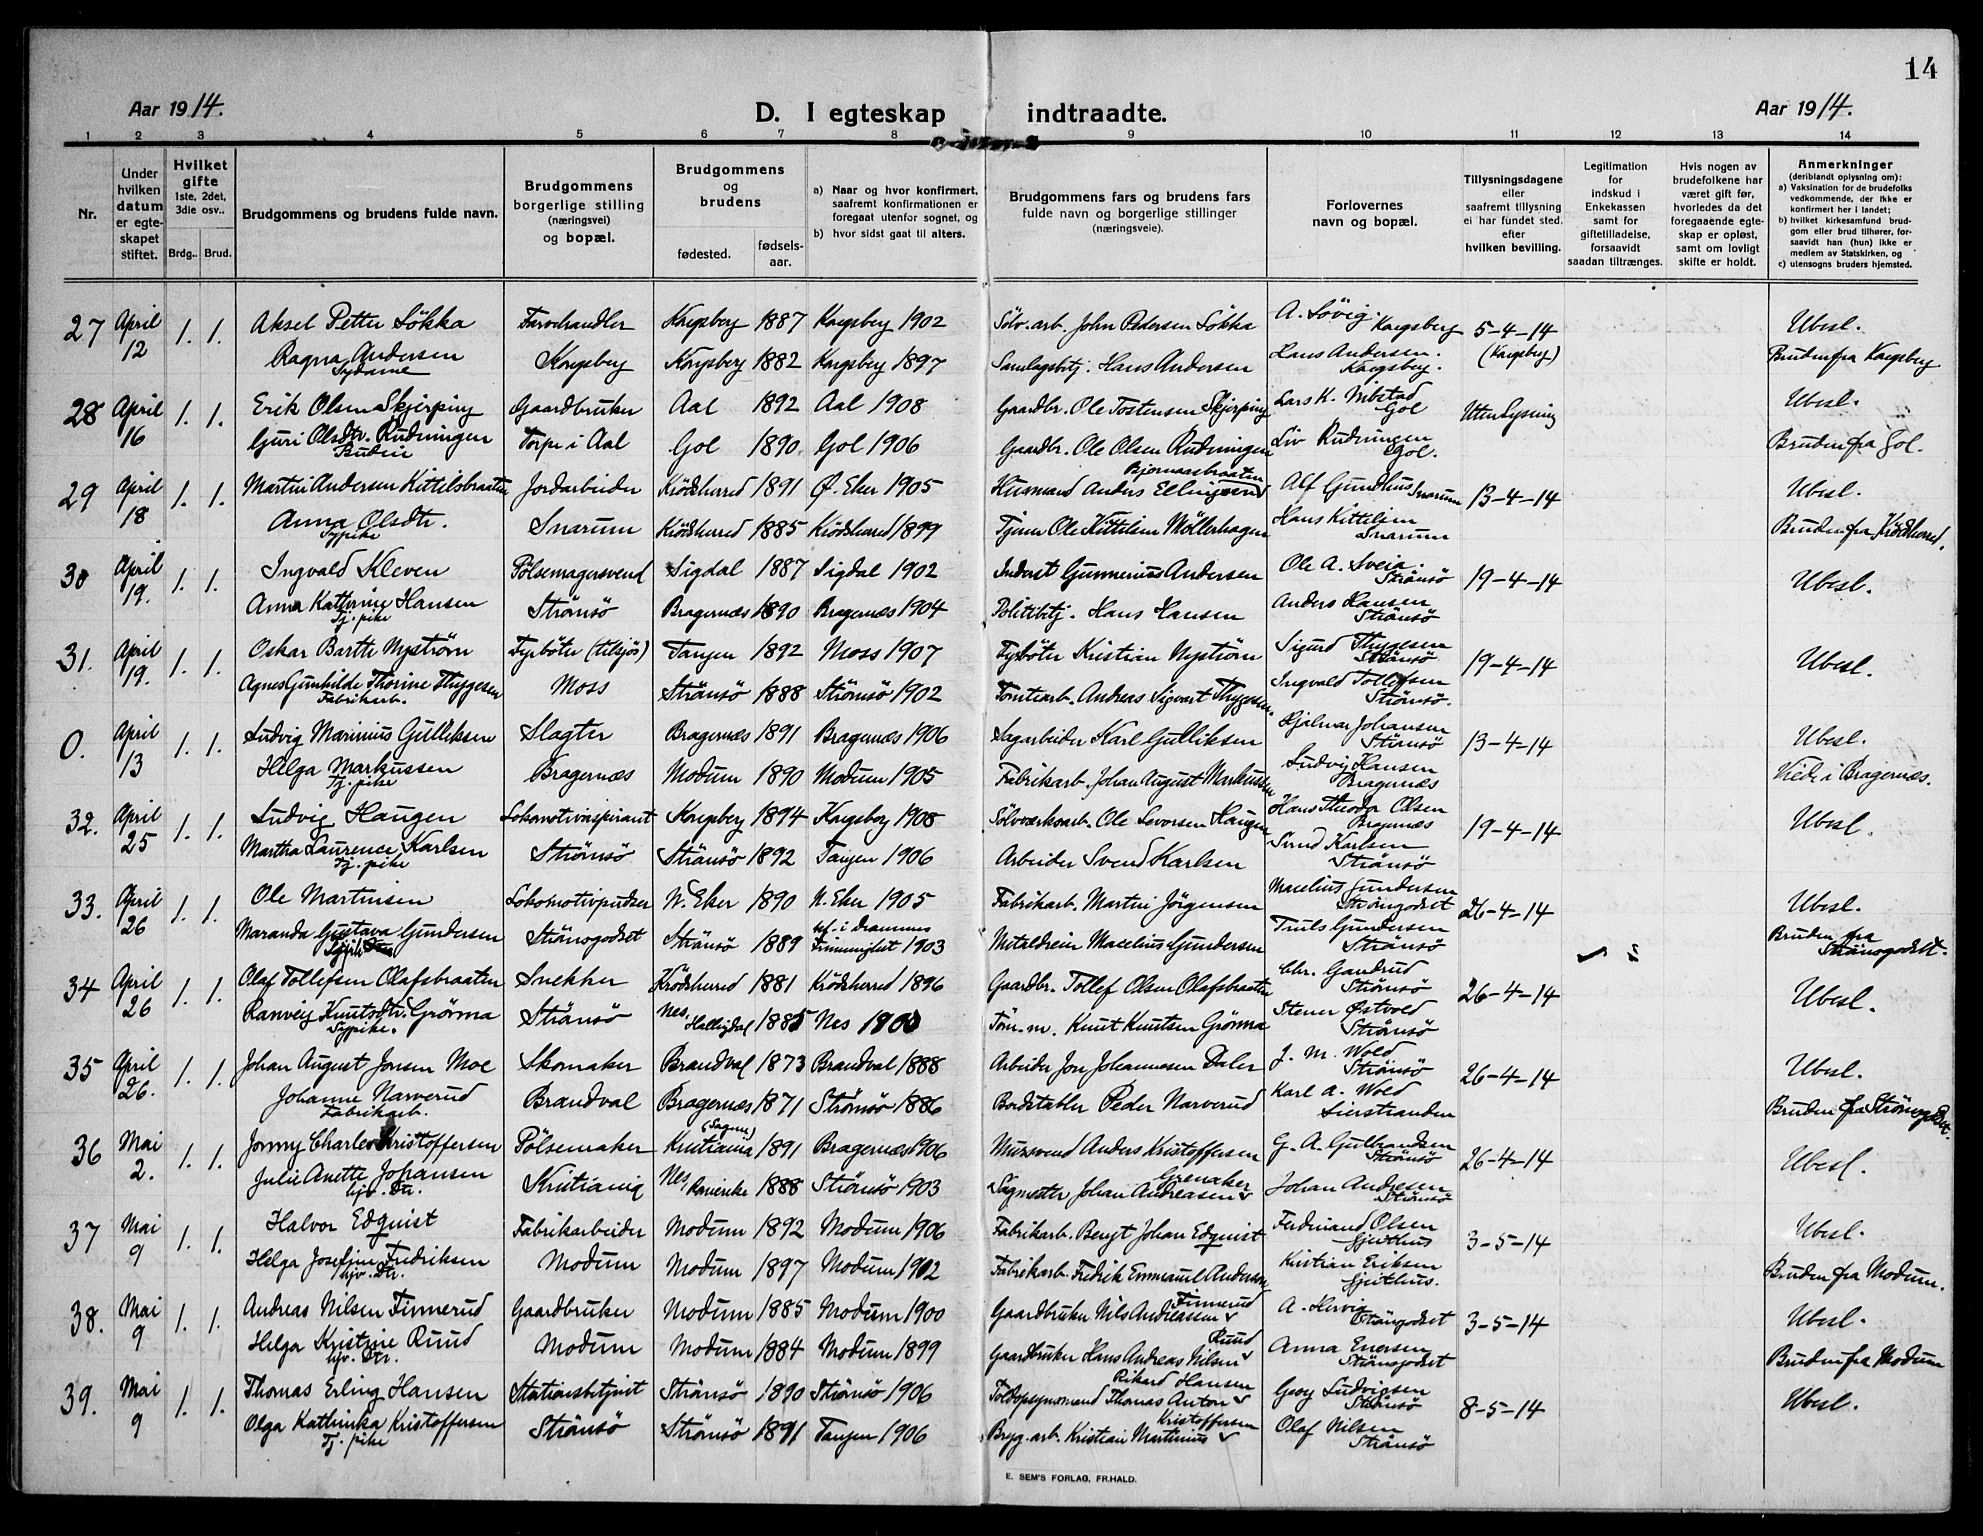 14
Aar 1914. D. I egteskap indtraadte. Aar 1914.
1 2 3 4 5 6 7 8 9 10 11 12 13 14
Nr.
Under hvilken datum er egteskapet stiftet.
Hvilket gifte 1ste, 2det, 3die osv.. Brdg.. Brud.
Brudgommens og brudens fulde navn.
Brudgommens borgerlige stilling (næringsvei) og bopæl.
Brudgommens og brudens fødested. fødsels-aar.
a) Naar og hvor konfirmert, saafremt konfirmationen er foregaat utenfor sognet, og
b) hvor sidst gaat til alters.
Brudgommens fars og brudens fars fulde navn og borgerlige stillinger (næringsveie).
Forlovernes navn og bopæl.
Tillysningsdagene eller saafremt tillysning ei har fundet sted. efter hvilken bevilling.
Legitimation for indskud i Enkekassen samt for giftetilladelse, forsaavidt saadan tiltrænges.
Hvis nogen av brudefolkene har været gift før, hvorledes da det foregaaende egteskap er opløst, samt om lovligt skifte er holdt.
Anmerkninger (deriblandt oplysning om):
a) Vaksination for de brudefolks vedkommende, der ikke er konfirmert her i landet;
b) hvilket kirkesamfund brudgom eller brud tilhører, forsaavidt han (hun) ikke er medlem av Statskirken, og
c) utensogns bruders hjemsted.
27 April 12 1. 1. Aksel Petter Løkka Farvehandler Kongsberg 1887 Kongsberg 1902 Sölv.arb. John Pedersen Løkka A. Lövig. Kongsberg 5-4-14 (Kongsberg) Ubesl.
Ragna Andersen Sydame Kongsberg Kongsberg 1882 Kongsberg 1897 Samlagsbtj. Hans Andersen Hans Andersen. Kongsberg. Bruden fra Kongsberg
28 April 16 1. 1. Erik Olsen Skjerping Gaardbruker Aal 1892 Aal 1908 Gaardbr. Ole Tostensen Skjerping Lars K. Gol Uten lysning Ubesl.
Guri Olsdtr. Rudningen Budeie Torpe i Aal Gol 1890 Gol 1906 Gaardbr. Ole Olsen Rudningen Liv Rudningen Gol. Bruden fra Gol.
29 April 18 1. 1. Martin Andersen Kittilsbraaten Jordarbeider Krödsherred 1891 Ø. Eker 1905 Husmand Anders Ellingsen Bjornaasbraaten Alf Gundhus Snarum 13-4-14 Ubesl.
Anna Olsdtr. Sypike Snarum Krödsherred 1885 Krödsherred 1899 Tjener Ole Kittilsen Möllerhagen Hans Kittelsen Snarum Bruden fra Krödsherred.
30 April 19. 1. 1. Ingvald Kleven Pölsemagersvend Sigdal 1887 Sigdal 1902 Inderst Gunnerius Andersen Ole A. Sveia. Strömsö 19-4-14 Ubesl.
Anna Kathrine Hansen Tj. pike Strömsö Bragernæs 1890 Bragernæs 1904 Politibtj. Hans Hansen Anders Hansen Strömsö
31. April 19. 1. 1. Oskar Barthe Nyström Fyrböter (tilsjös) Tangen 1892 Moss 1907 Fyrböter Kristian Nyström Sigurd Thygesen Strömsö 19-4-14 Ubesl.
Agnes Gunhilde Thorine Thygesen Fabrikarb. Moss Strömsö 1888 Strömsö 1902 Tomtearb. Andreas Sigvart Thygesen. Ingvald Tollefsen Strömsö.
0. April 13 1. 1. Ludvig Marinius Gulliksen Slagter Bragernæs 1891 Bragernæs 1906 Sagarbeider Karl Gulliksen Hjalmar Johansen Strömsö 13-4-14 Ubesl.
Helga Markussen Tj. pike Bragernæs Modum 1890 Modum 1905 Fabrikarb. Johan August Markussen Ludvig Hansen Bragernæs Viede i Bragernæs.
32. April 25 1. 1. Ludvig Haugen Lokomotivaspirant Kongsberg 1894 Kongsberg 1908 Sölvverksarb. Ole Levorsen Haugen Hans Theodor Olsen Bragernæs 19-4-14 Ubesl.
Martha Laurence Karlsen Tj. pike Strömsö Strömsö 1892 Tangen 1906 Arbeider Svend Karlsen Svend Karlsen Strömsö
33. April 26 1. 1. Ole Martinsen Lokomotivpudser N. Eker 1890 N. Eker 1905 Fabrikarb. Martin Jörgensen Marelius Gundersen Strömsgodset 26-4-14 Ubesl.
Maranda Gustava Gundersen Strömsgodset Strömsö 1889 bf. i Drammens Frimenighet 1903 Metaldreier Marelius Gundersen Truls Gundersen Strömsö Bruden fra Strömsgodset.
34 April 26 1. 1. Olaf Tollefsen Olafsbraaten Snekker Krödsherred 1881 Krödsherred 1896 Gaardbr. Tollef Olsen Olafsbraaten Chr. Gandrud Strömsö 26-4-14 Ubesl.
Ranveig Knutsdtr. Grönna Sypike. Strömsö Nes, Hallingdal 1885 Nes 1900 Töm.m. Knut Knutsen Grönna Stener Østvold Strömsö
35 April 26. 1. 1. Johan August Jonsen Moe Skomaker Brandval 1873 Brandval 1888 Arbeider Jon Johannesen Daler J. M. Wold Strömsö 26-4-14 Ubesl.
Johanne Narverud Fabrikarb. Brandval Bragernæs 1871 Strömsö 1886 Bordstabler Peder Narverud Karl A. Wold Lierstranden Bruden fra Strömsgodset.
36 Mai 2. 1. 1. Jonny Charles Kristoffersen Pölsemaker Kristiania (Sagene) 1891 Bragernæs 1906 Mursvend Anders Kristoffersen G. A. Gulbrandsen Strömsö 26-4-14 Ubesl.
Julie Anette Johansen hjv. Dtr. Kristiania Nes, Romerike 1888 Strömsö 1903 Sagmester Johan Andreasen Grenaker Johan Andresen Strömsö
37 Mai 9 1. 1. Halvor Edquist Fabrikarbeider Modum 1892 Modum 1906 Fabrikarb. Bengt Johan Edquist Ferdinand Olsen Gjeithus 3-5-14 Ubesl.
Helga Josefine Fredriksen hjv. Dtr. Modum Modum 1897 Modum 1912 Fabrikarb. Fredrik Emmanuel Andersen Kristian Eriksen Gjeithus. Bruden fra Modum.
38. Mai 9 1. 1. Andreas Nilsen Finnerud Gaardbruker Modum 1885 Modum 1900 Gaardbruker Nils Andreassen Finnerud A. Hervig Strömsgodset 3-5-14 Ubesl.
Helga Kristine Ruud hjv. Dtr. Modum Modum 1884 Modum 1899 Gaardbruker Hans Andreas Nilsen Ruud Anna Enersen Strömsgodset Bruden fra Modum
39. Mai 9 1. 1. Thomas Erling Hansen Stationsbetjent Strömsö 1890 Strömsö 1906 Toldopsynsmand Thomas Anton Rikard Hansen Georg Ludvigsen Strömsö 8-5-14 Ubesl.
Olga Kathinka Kristoffersen Tj. pike Strömsö Strömsö 1891 Tangen 1906 Bryg.arb. Kristian Martinius Kristoffersen Olaf Nilsen Strömsö
E. SEM'S FORLAG, FR.HALD.